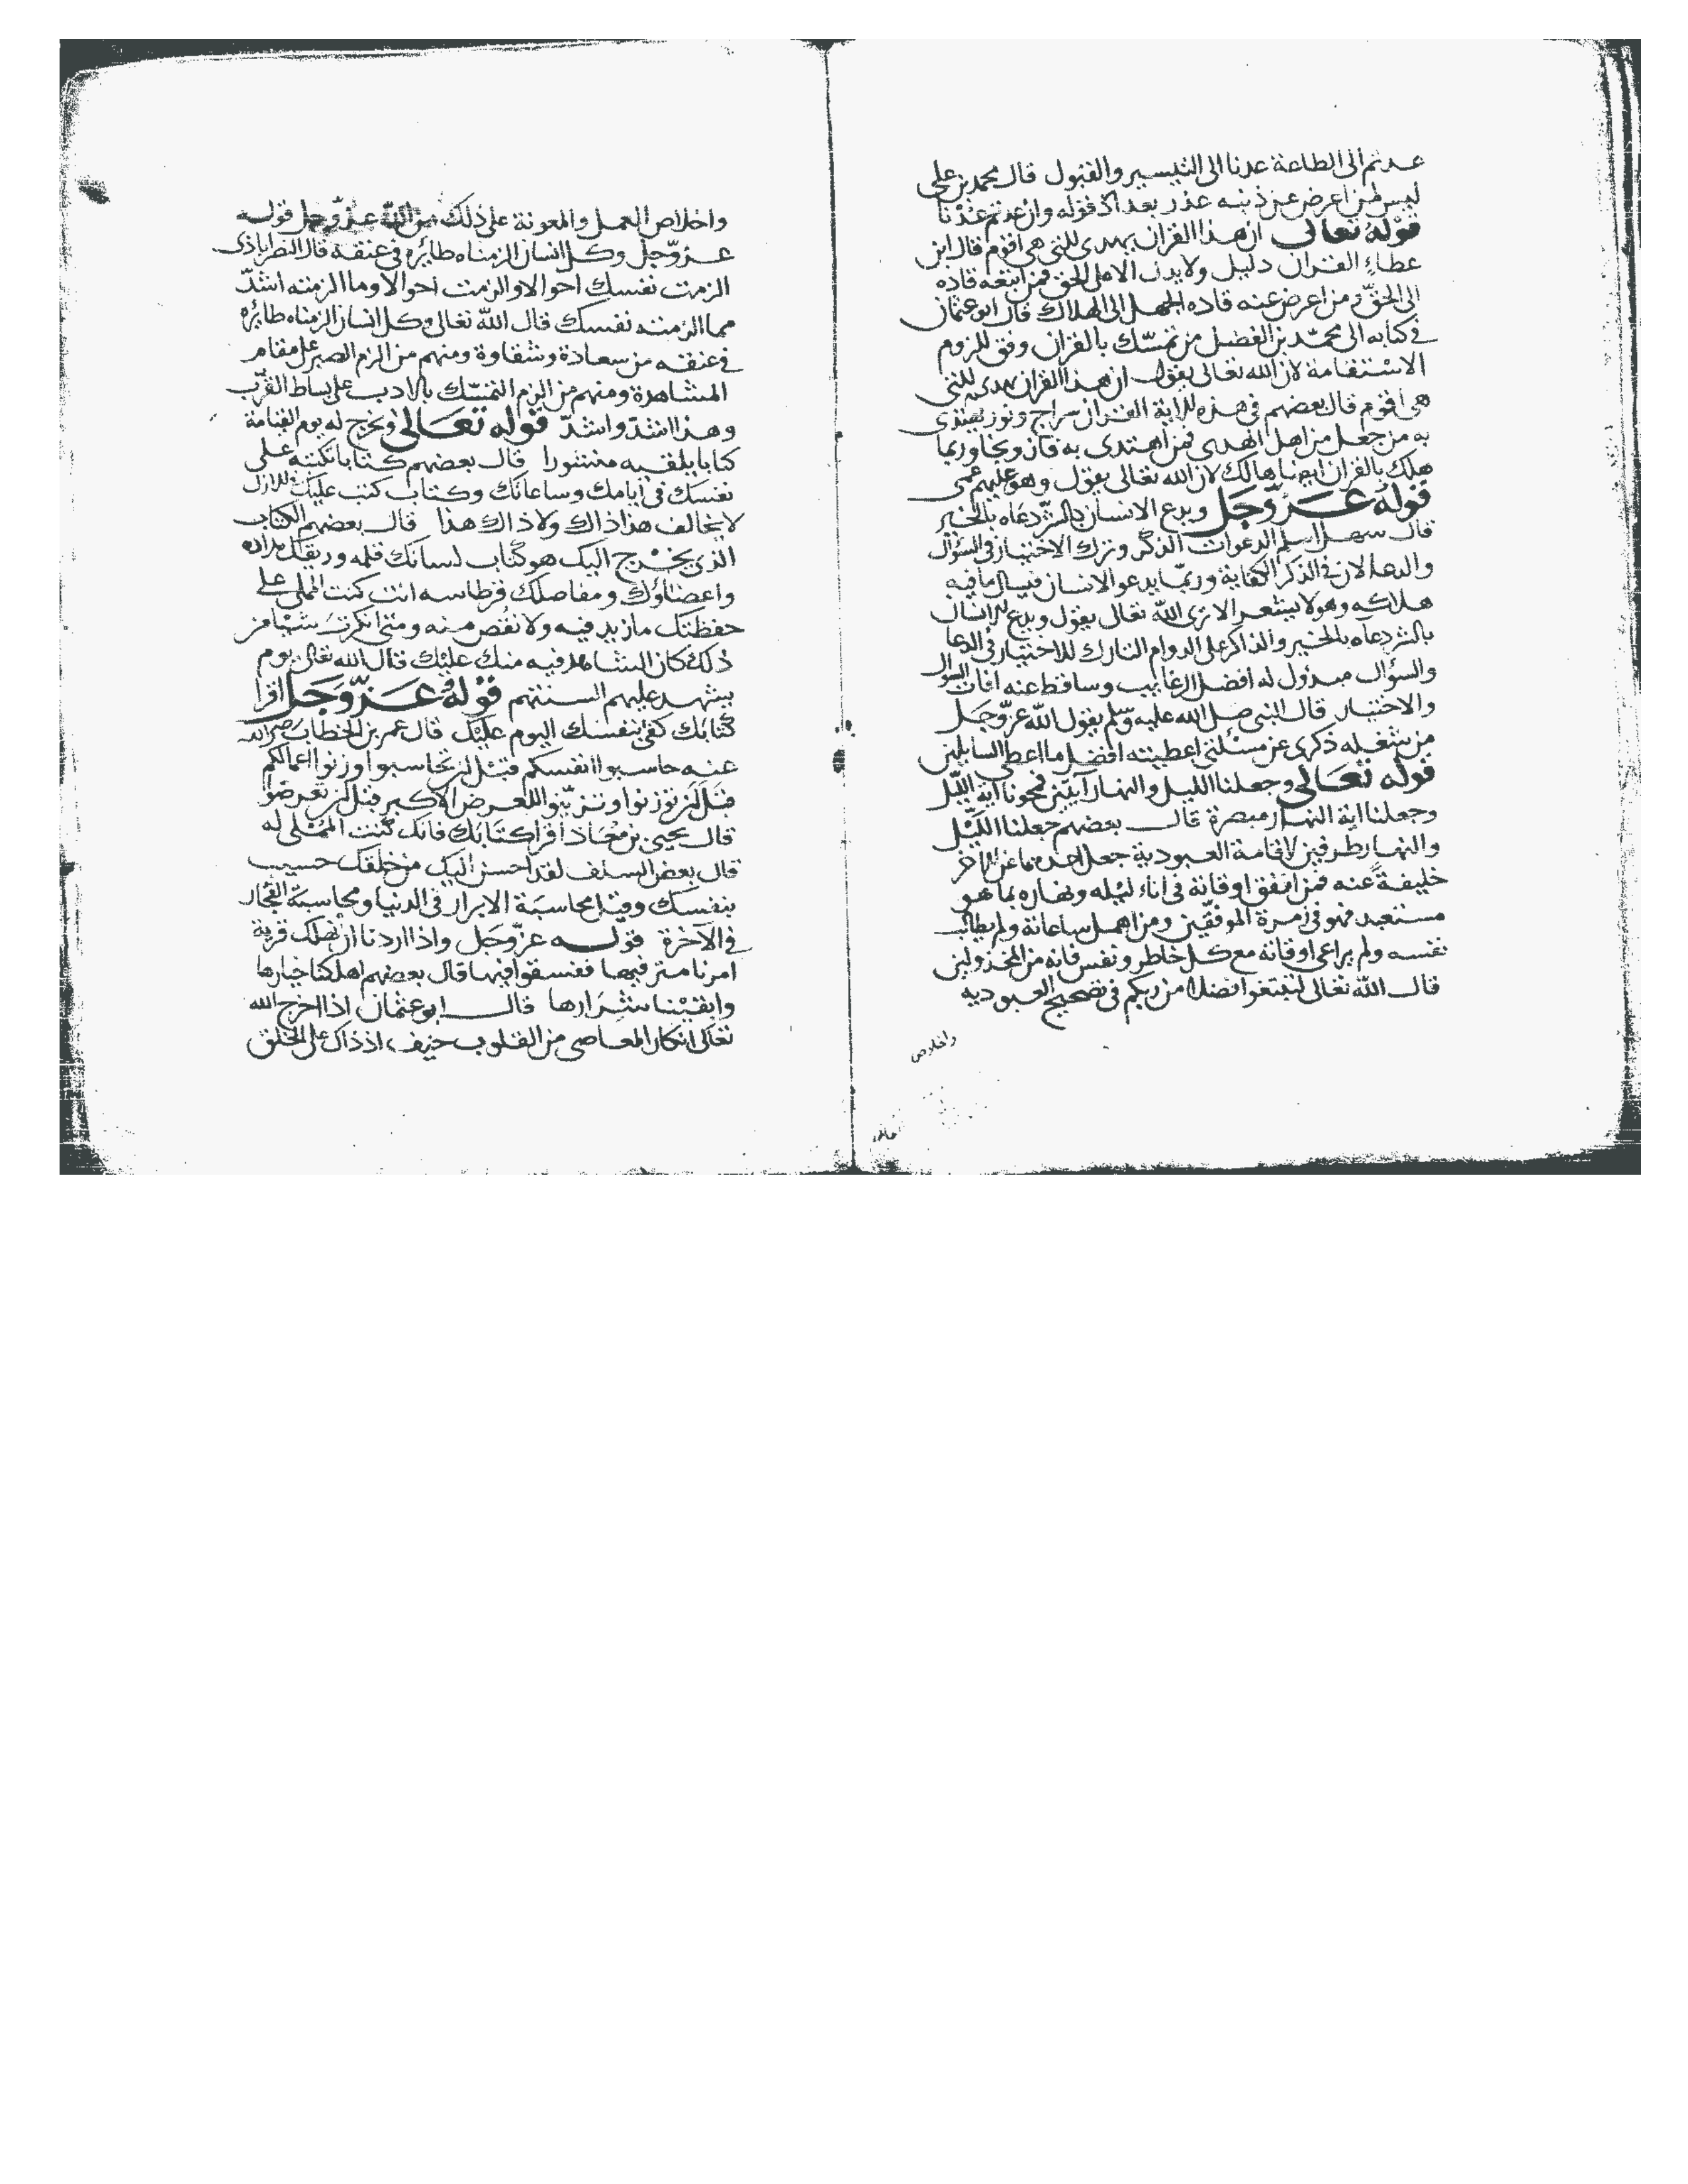 عدتم الى الطاعة عدنا الى التيسير والقبول قال محمد بن على
ليس لمن اعرض عن ذنبه عذر بعد اذ قوله وان عدتم عدنا
قوله تعالى ان هذا القران يهدى للتى هى اقوم قال ابن
عطاء القران دليل ولا يدل الا على الحق فمن اتبعه قاده
الى الحق ومن اعرض عنه قاده الجهل الى الهلاك قال ابو عثمان
فى كتابه الى محمد بن الفضل من تمسك بالقران وفق للزوم
الاستقامة لان الله تعالى يقول ان هذا القران يهدى للتى
هى اقوم قال بعضهم فى هذه الاية القران سراج ونور يهتدى
به من جعل من اهل الهدى فمن اهتدى به فاز ونجا وربما
هلك بالقران ايضا هالك لان الله تعالى يقول وهو عليهم عمى
قوله عز وجل ويدع الانسان بالشر دعاه بالخير
قال سهل اسلم الدعوات الذكر وترك الاختيار فى السؤال
والدعا لان فى الذكر الكفاية وربما يدعو الانسان فيسال ما فيه
هلاكه وهو لا يشعر الا ترى الله تعالى يقول ويدع الانسان
بالشر دعاه بالخير والذاكر على الدوام التارك للاختيار فى الدعا
والسؤال مبذول له افضل الرغايب وساقط عنه افات السؤال
والاختيار قال النبى صلى الله عليه وسلم يقول الله عز وجل
من شغله ذكرى عن مسئلتى اعطيته افضل ما اعطى السايلين
قوله تعالى وجعلنا الليل والنهار آيتين فمحونا اية الليل
وجعلنا اية النهار مبصرة قال بعضهم جعلنا الليل
والنهار طرفين لاقامة العبودية جعل احدهما عن الاخر
خليفة عنه فمن انفق اوقاته فى اناء ليله ونهاره بما هو
مستعبد فهو فى زمرة الموفقين ومن اهمل ساعاته ولم يطالب
نفسه ولم يراعى اوقاته مع كل خاطر ونفس فانه من المخذولين
قال الله تعالى لتبتغوا فضلا من ربكم فى تصحيح العبودية
واخلاص
واخلاص العمل والمعونة على ذلك من الله عز وجل قوله
عز وجل وكل انسان الزمناه طائره فى عنقه قال النصراباذى
الزمت نفسك احوالا والزمت احوالا وما الزمته اشد
مما الزمته نفسك قال الله تعالى وكل انسان الزمناه طائره
فى عنقه من سعادة وشقاوة ومنهم من الزم الصبر على مقام
المشاهدة ومنهم من الزم التمسك بالادب على بساط القرب
وهذا اشد واشد قوله تعالى ونخرج له يوم القيامة
كتابا يلقيه منشورا قال بعضهم كتابا تكتبه على
نفسك فى ايامك وساعاتك وكتاب كتب عليك فى الازل
لا يخالف هذا ذاك ولا ذاك هذا قال بعضهم الكتاب
الذى يخرج اليك هو كتاب لسانك قلمه وريقك مداده
واعضاؤك ومفاصلك قرطاسه انت كنت المملى على
حفظتك ما زيد فيه ولا نقص منه ومتى انكرت شيا من
ذلك كان الشاهد فيه منك عليك قال الله تعالى يوم
يشهد عليهم السنتهم قوله عز وجل اقرا
كتابك كفى بنفسك اليوم عليك قال عمر بن الخطاب رضى الله
عنه حاسبوا انفسكم قبل ان تحاسبوا وزنوا اعمالكم
قبل ان توزنوا وتزينوا للعرض الاكبر قبل ان تعرضوا
قال يحيى بن معاذ اقرا كتابك فانك كنت المملى له
قال بعض السلف لقد احسن اليك من خلقك حسيب
بنفسك وقيل محاسبة الابرار فى الدنيا ومحاسبة الفجار
فى الآخرة قوله عز وجل واذا اردنا ان نهلك قرية
امرنا مترفيها ففسقوا فيها قال بعضهم اهلكنا خيارها
وابقينا شرارها قال ابو عثمان اذا اخرج الله
تعالى انكار المعاصى من القلوب حينئذ اذ ذاك على الخلق